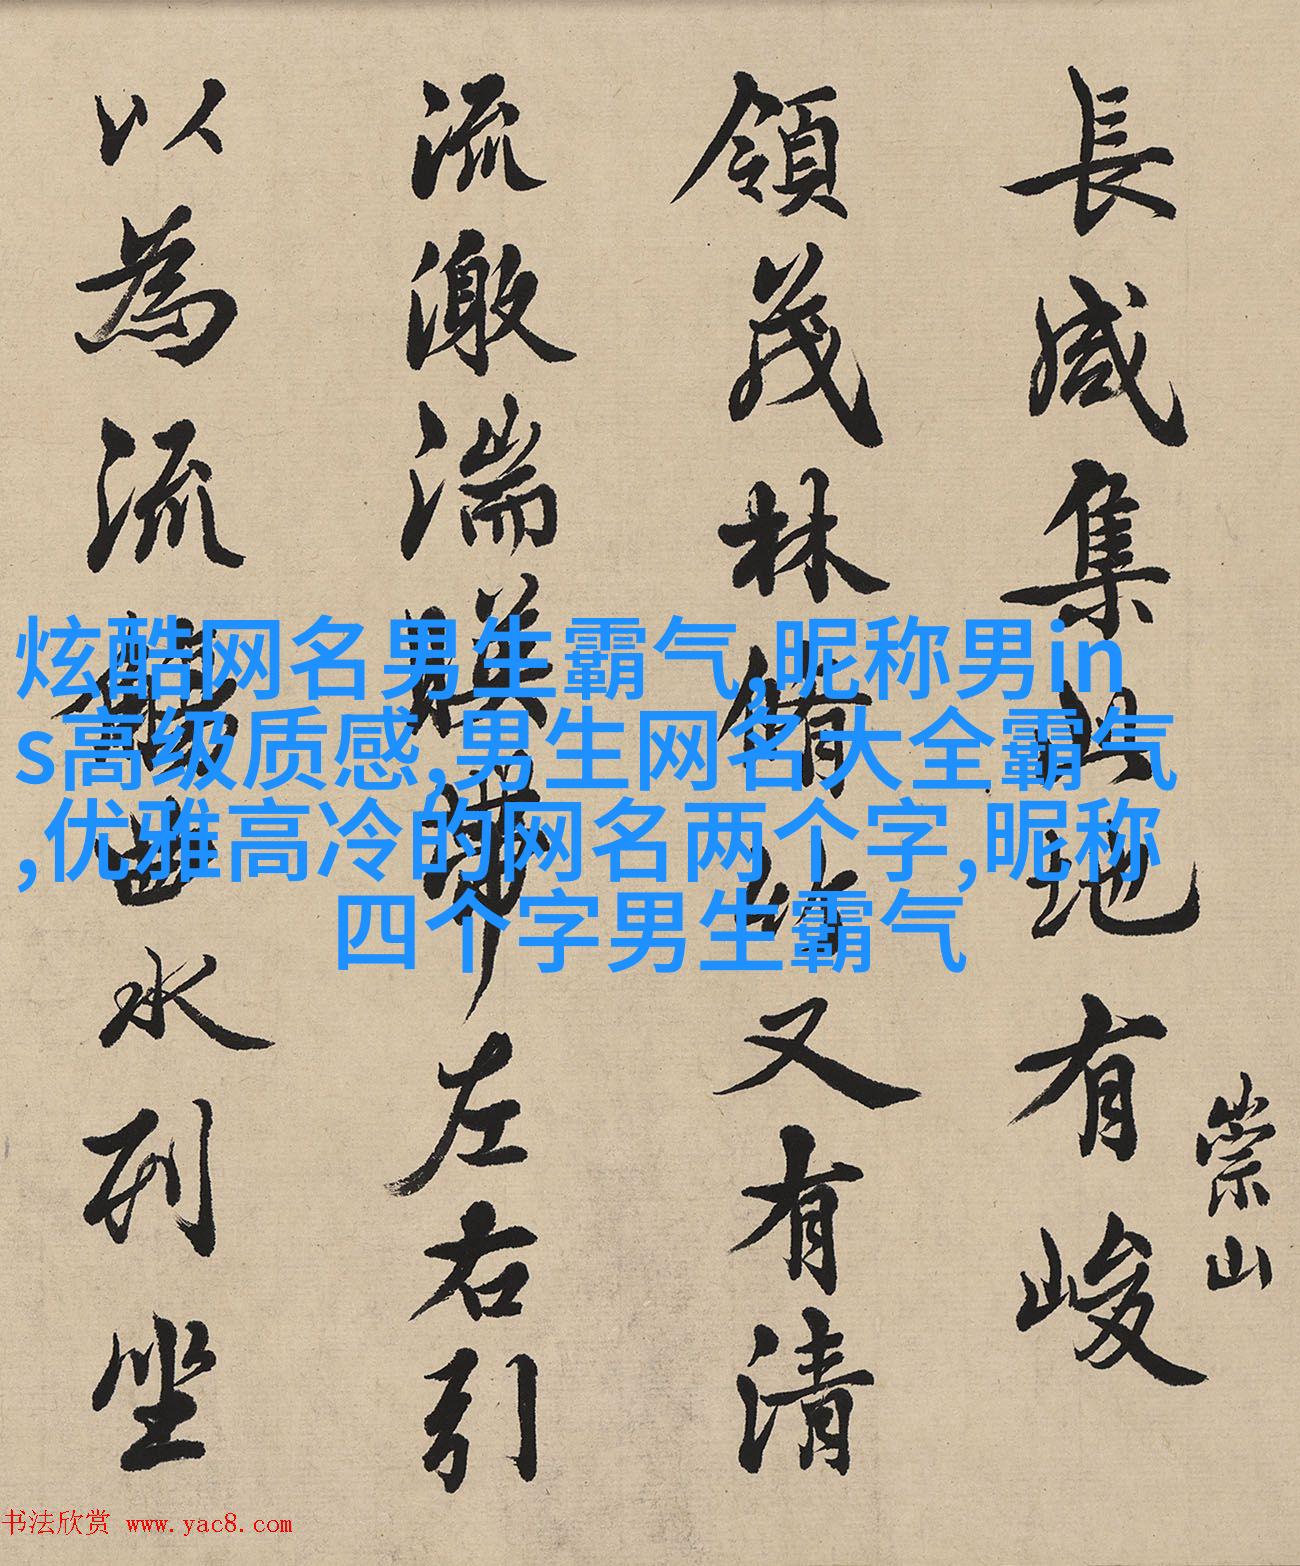 長咸集此地有峻
崇山
領茂林脩竹又有清
流激湍暎帶左右引
以為流觴曲水列坐
炫酷网名男生霸气,昵称男in
s高级质感,男生网名大全霸气
,优雅高冷的网名两个字,昵称
四个字男生霸气
书法欣赏 www.yac8.com